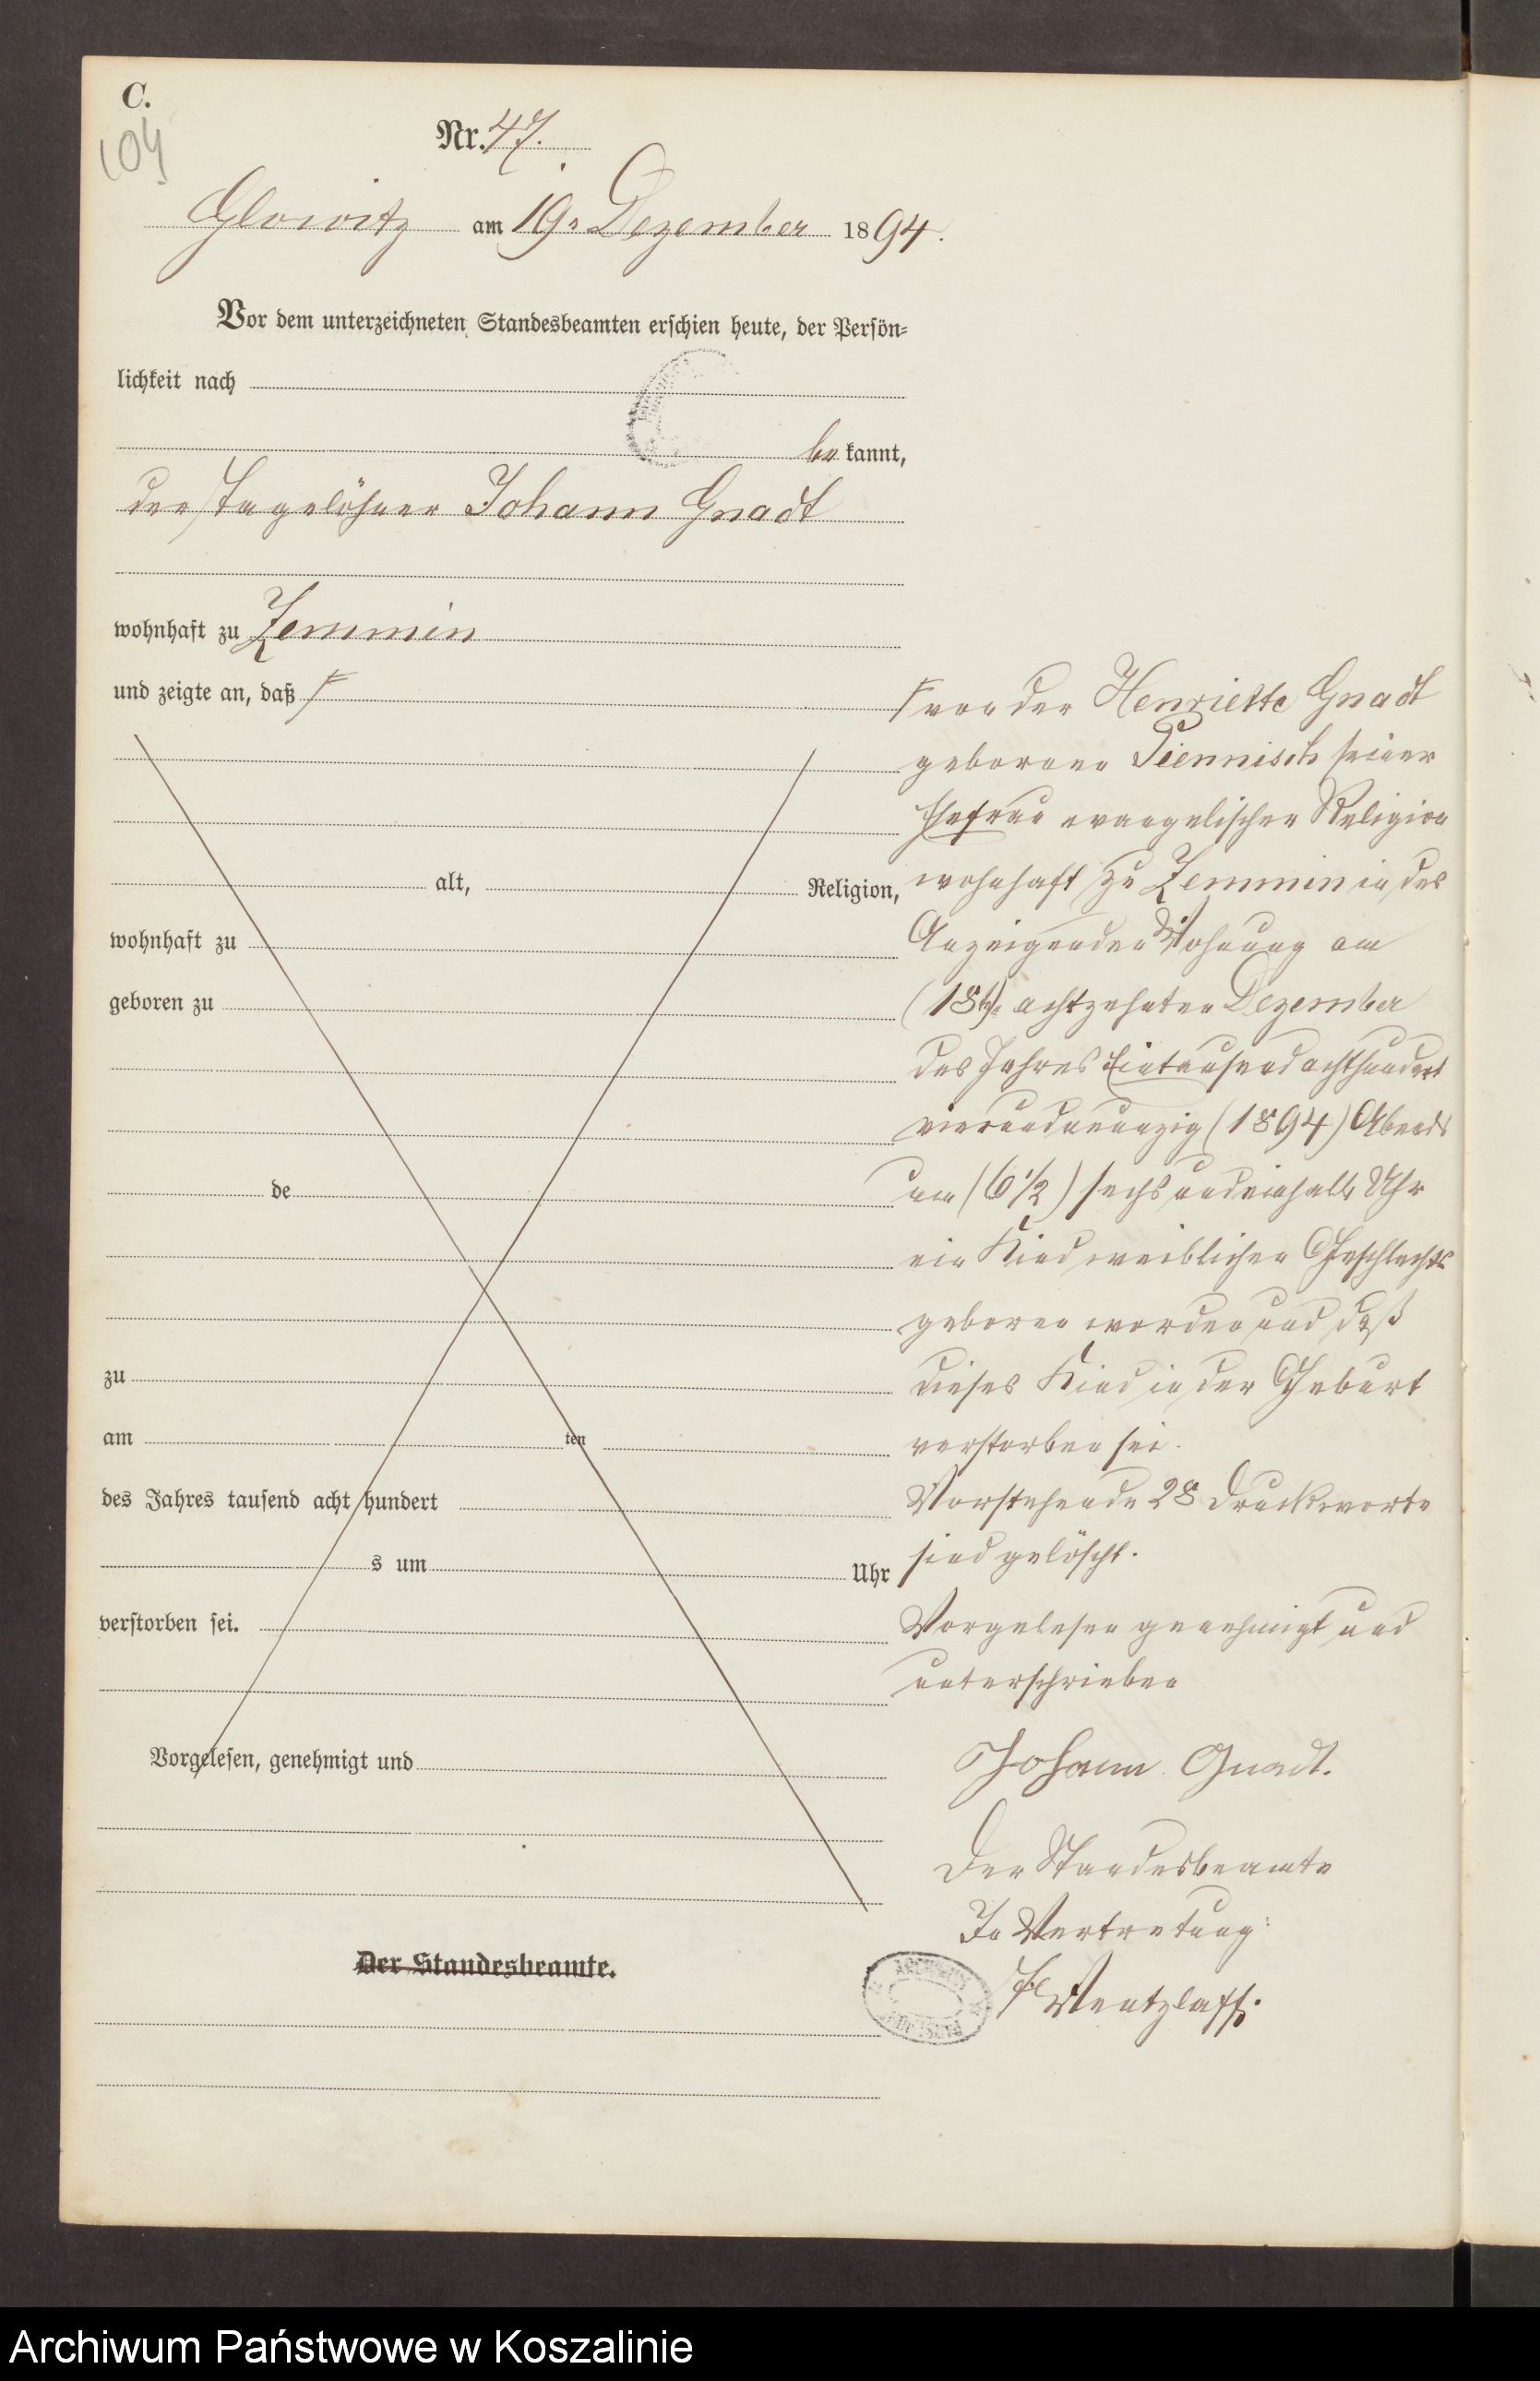 C.
104
Nr. 47.
Glowitz am 19. Dezember 1894.
Vor dem unterzeichneten Standesbeamten erschien heute, der Persön-
lichkeit nach
bekannt,
der Tagelöhner Johann Gnadt
wohnhaft zu Zemmin
und zeigte an, daß
alt, Religion,
wohnhaft zu
geboren zu
de
zu
am ten
des Jahres tausend acht hundert
s um Uhr
verstorben sei.
Vorgelesen, genehmigt und
Der Standesbeamte.
von der Henriette Gnadt
geborene seiner
Ehefrau evangelischer Religion
wohnhaft zu Zemmin in des
Anzeigenden Wohnung am
(18t). achtzehnten Dezember
des Jahres Eintausend achthundert
vierundneunzig (1894) Abends
um (6 1/2) sechs und einhalb Uhr
ein Kind weiblichen Geschlechts
geboren worden und daß
dieses Kind in der Geburt
verstorben sei.
Vorstehende 28 Druckworte
sind gelöscht.
Vorgelesen genehmigt und
unterschrieben
Johann Gnadt.
Der Standesbeamte
In Vertretung:
Wentzlaff.
Archiwum Państwowe w Koszalinie